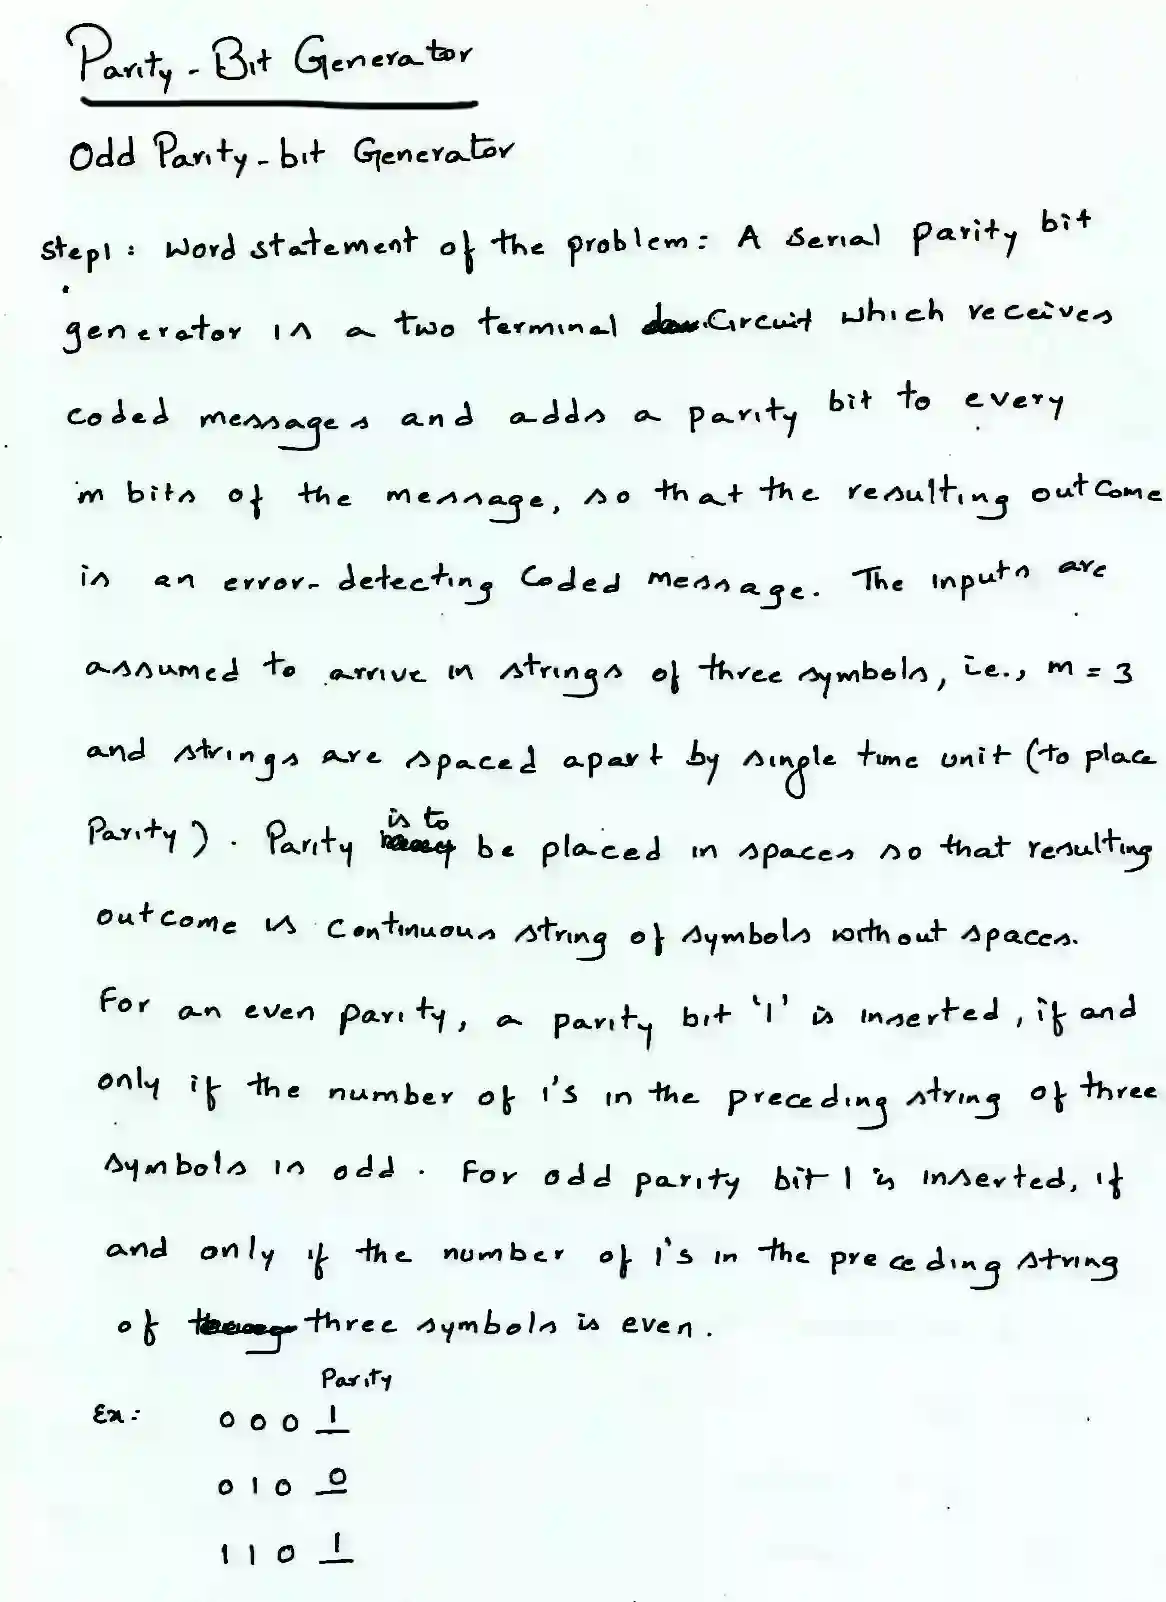 Parity - Bit Generator
Odd Parity - bit Generator
Step1 : Word statement of the problem : A Serial parity bit
generator is a two terminal Circuit which receives
coded messages and adds a parity bit to every
m bits of the message, so that the resulting outcome
is an error- detecting Coded message. The inputs are
assumed to arrive in strings of three symbols, i.e., m = 3
and strings are spaced apart by single time unit (to place
Parity) . Parity is to be placed in spaces so that resulting
outcome is continuous string of symbols without spaces.
For an even parity, a parity bit '1' is inserted, if and
only if the number of 1's in the preceding string of three
symbols is odd . For odd parity bit 1 is inserted, if
and only if the number of 1's in the preceding string
of three symbols is even .
Parity
Ex : 0 0 0 1
0 1 0 0
1 1 0 1